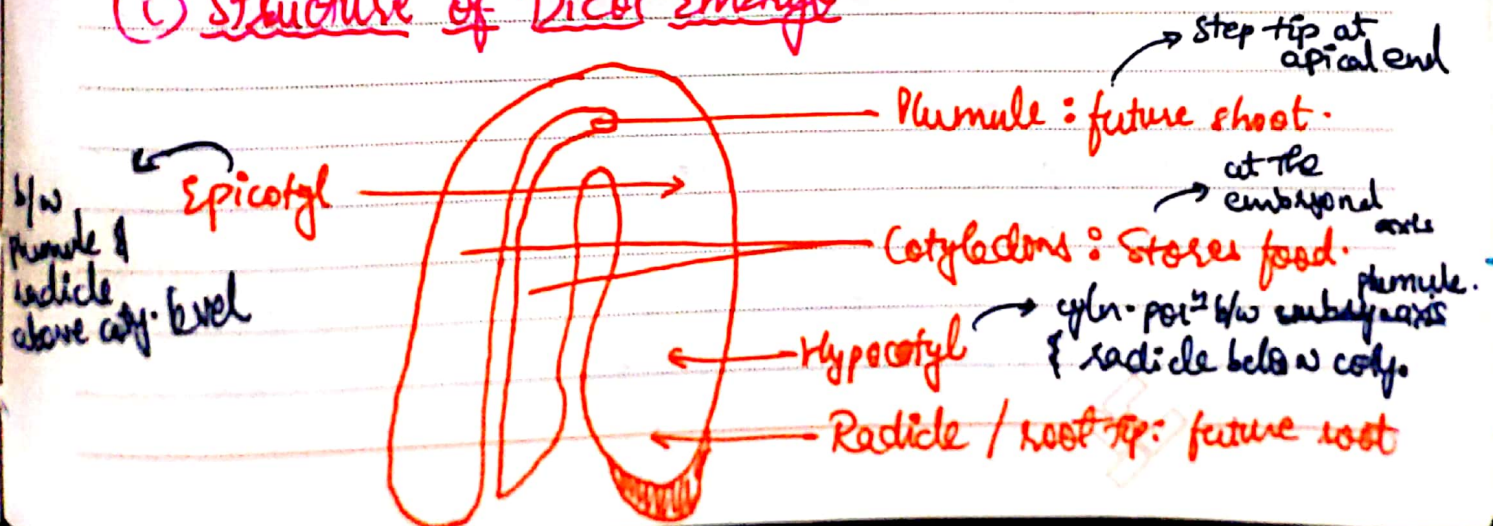 (i) Structure of Dicot Embryo
step tip at
apical end
Plumule : future shoot.
Epicotyl
b/w
plumule &
radicle
above coty. level
at the
embryonal
axis
Cotyledons : Stores food.
plumule.
Hypocotyl
cyln. porⁿ b/w embry axis
& radicle below coty.
Radicle / root tip: future root